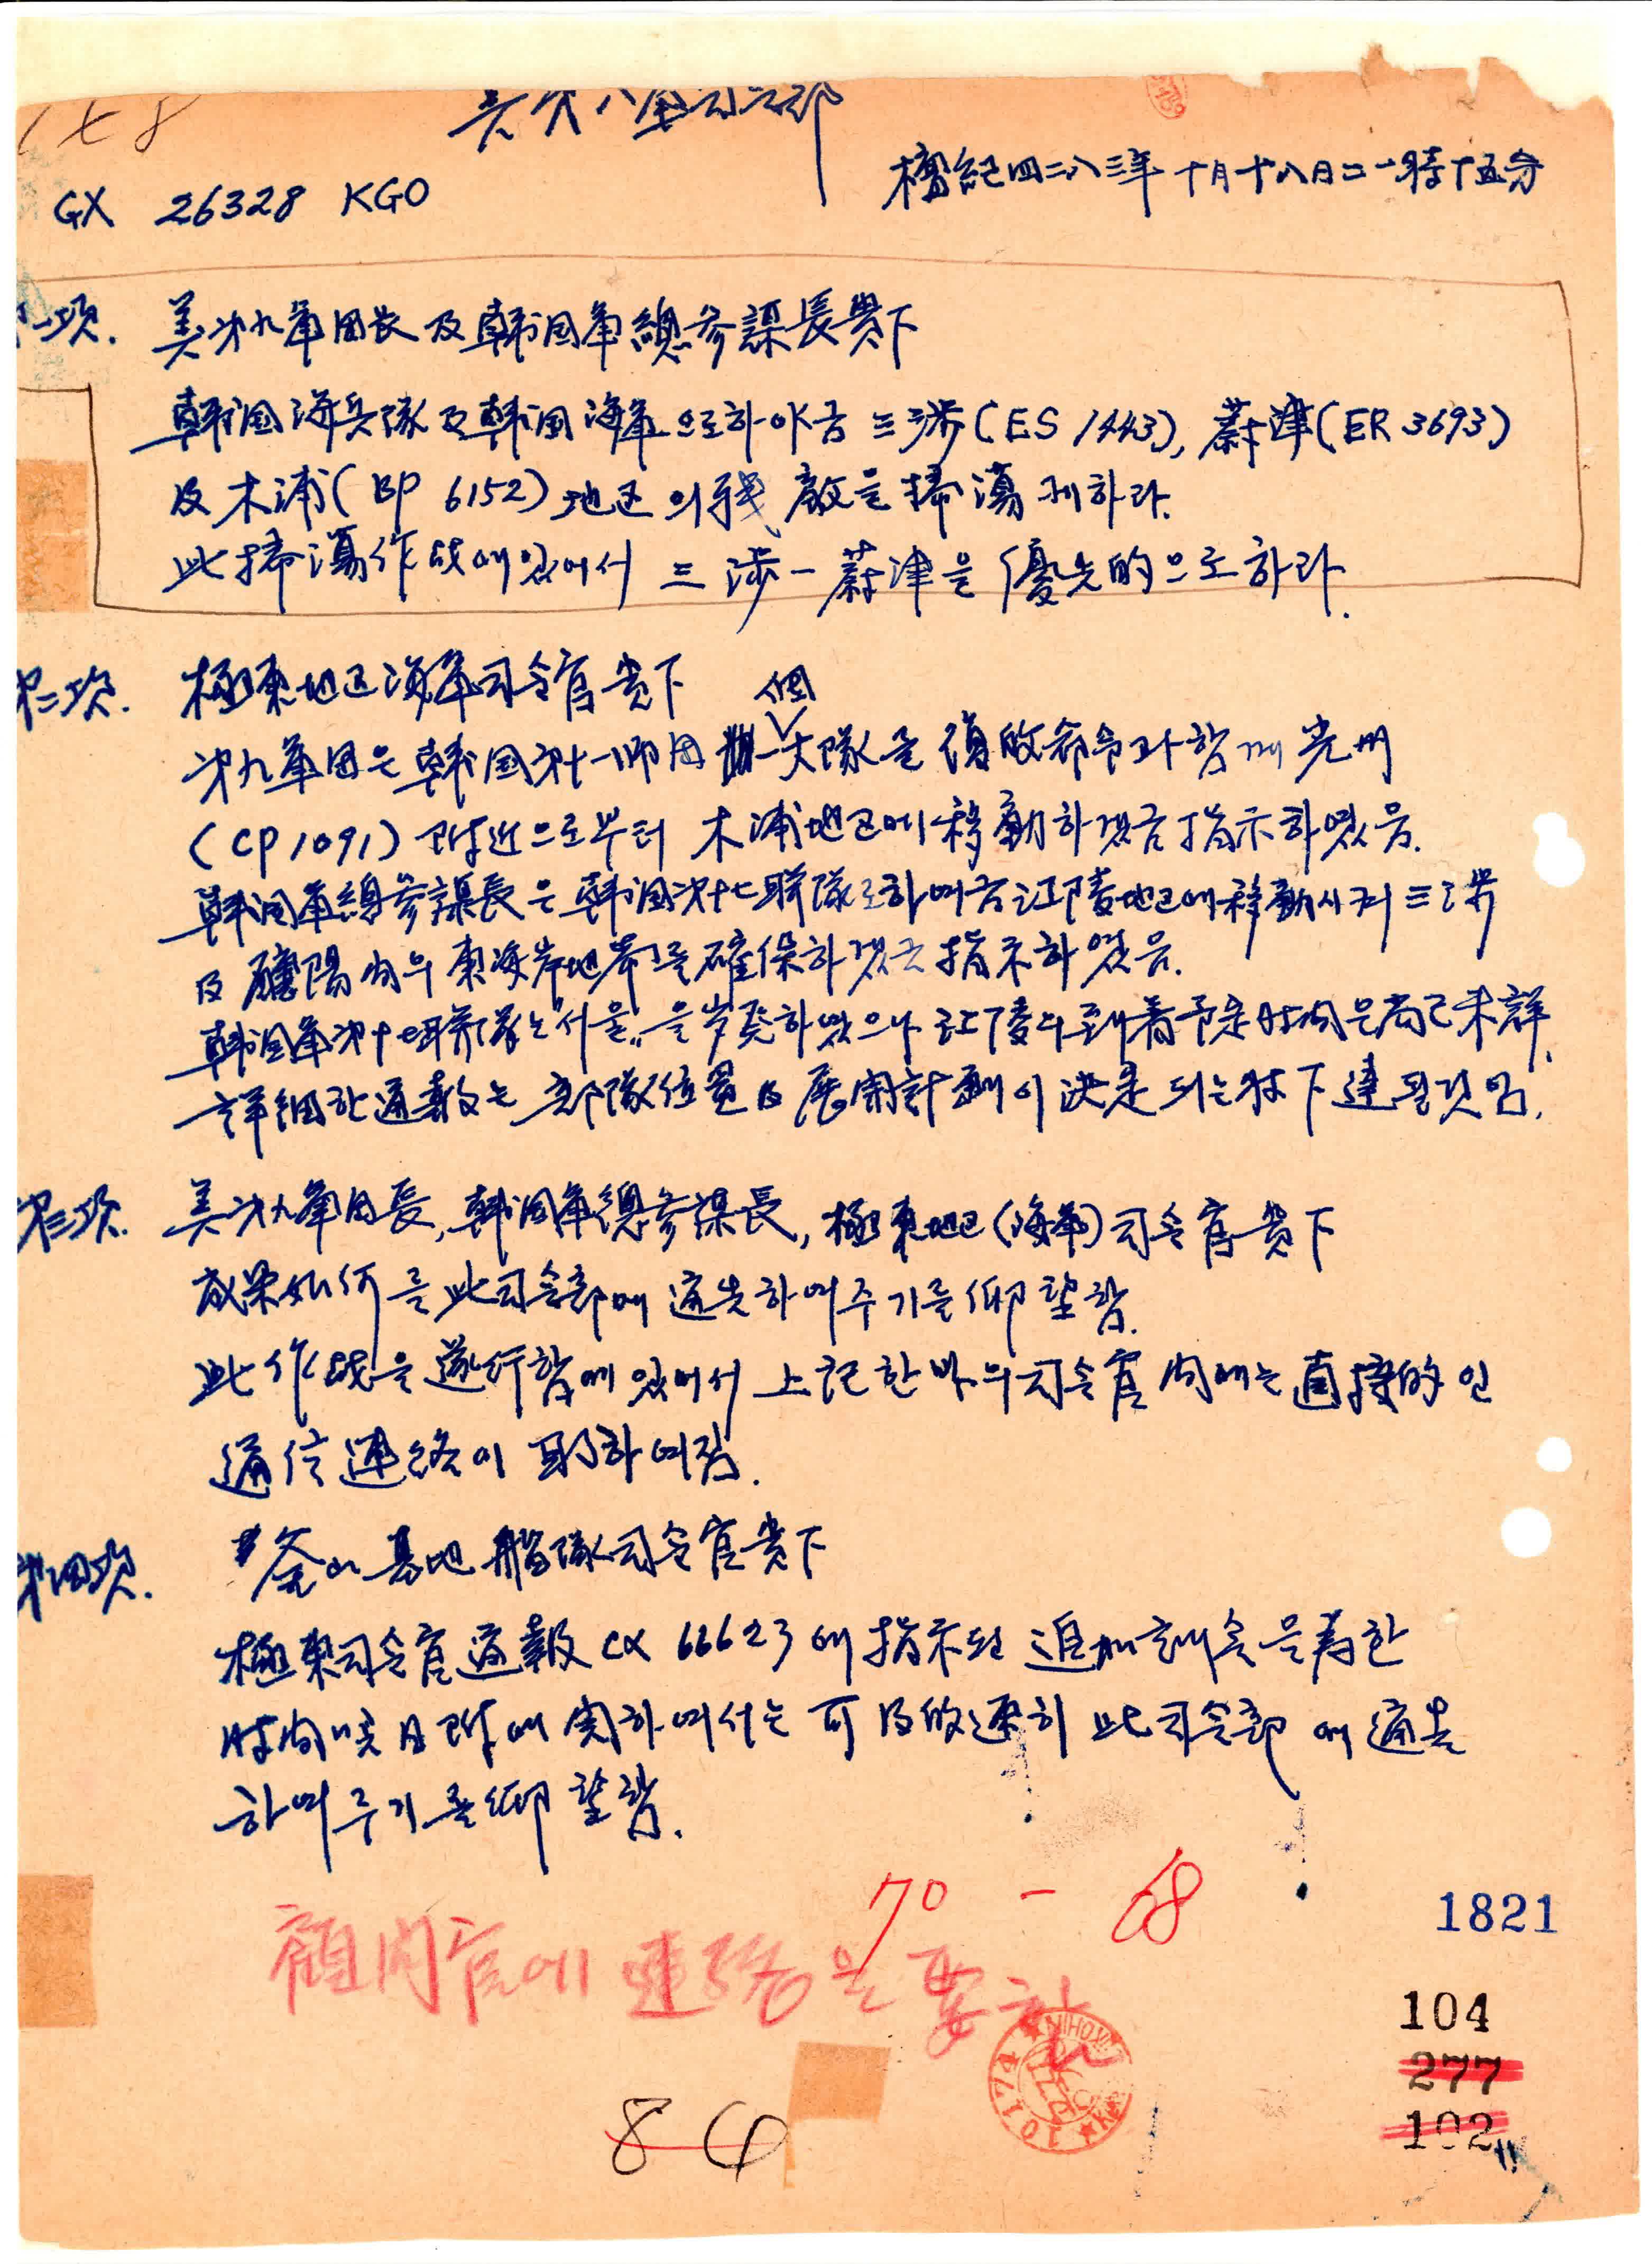 美第八軍司令部
檀紀四二八三年 十月十八日二一時十五分
GX 26328 KGO
第一項. 美第九軍団長 及 韓国軍總參謀長貴下
韓国海兵隊 及 韓国海軍으로하야금 三涉(ES 1443), 蔚津(ER 3693)
及 木浦(BP 6152) 地区의 残敵을 掃蕩케하라.
此掃蕩作战에있어서 三涉-蔚津을 優先的으로하라.
第二項. 極東地区海軍司令官貴下
第九軍団은 韓国第十一師団 一個大隊을 命令과함께 光州
(CP 1091) 附近으로부터 木浦地区에 移動하겠금 指示하였음.
韓国軍總參謀長은 韓国第十七联隊로하여금 江陵地区에 移動시켜 三涉
及 襄陽间의 東海岸地帯를 確保하겠금 指示하였음.
韓国軍第十七联隊는 "서울"을 出発하였으나 江陵의 到着予定时间은 尚今未詳.
詳細한 通報는 部隊位置 及 展開計劃이 決定되는时 下達될것임.
第三項. 美第九軍団長, 韓国軍總參謀長, 極東地区(海軍)司令官貴下
成果如何를 此司令部에 通告하여주기를 仰望함.
此作战을 遂行함에 있어서 上記한바의 司令官间에는 直接的인
通信連絡이 可하여짐.
第四項. 釜山基地艦隊司令官貴下
極東司令官通報 CX 66623에 指示된 追加訓令을 為한
时间 及 日附에 関하여서는 可及的速히 此司令部에 通告
하여주기를 仰望함.
70 - 68
顧问官에 連絡을 要함
1821
104
277
102
84